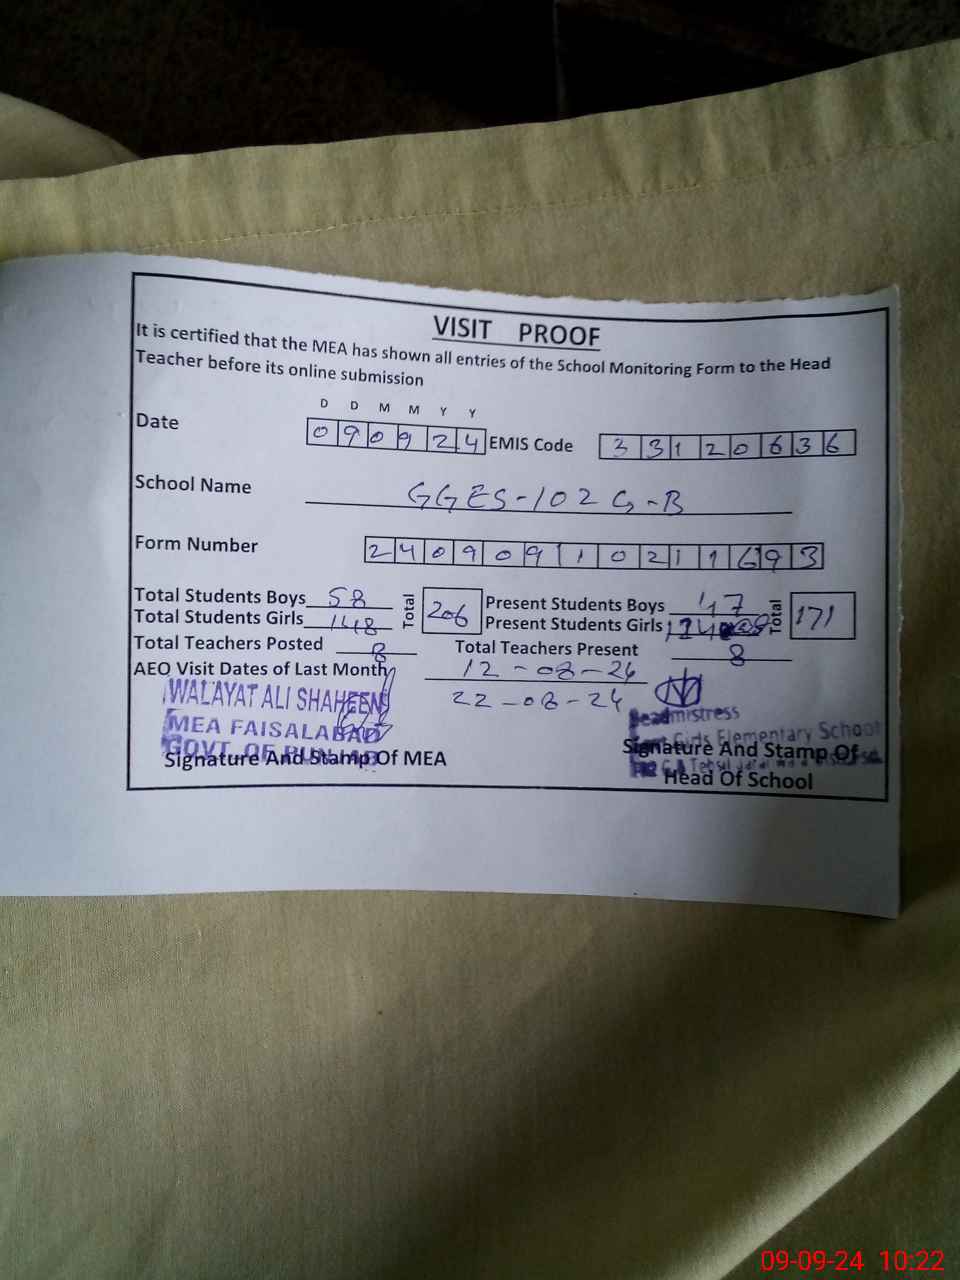 VISIT PROOF
It is certified that the MEA has shown all entries of the School Monitoring Form to the Head
Teacher before its online submission
D D M M Y Y
Date 0 9 0 9 2 4 EMIS Code 3 3 1 2 0 6 3 6
School Name GGES-102 G-B
Form Number 2 4 0 9 0 9 1 1 0 2 1 1 6 9 3
Total Students Boys 58 Total 206 Present Students Boys 47 Total 171
Total Students Girls 148 Present Students Girls
Total Teachers Posted 8 Total Teachers Present 8
AEO Visit Dates of Last Month 12-08-24
22-08-24
WALAYAT ALI SHAHEEN
MEA FAISALABAD
GOVT. OF PUNJAB
Signature And Stamp Of MEA
Headmistress
Girls Elementary School
Signature And Stamp Of
Head Of School
09-09-24 10:22